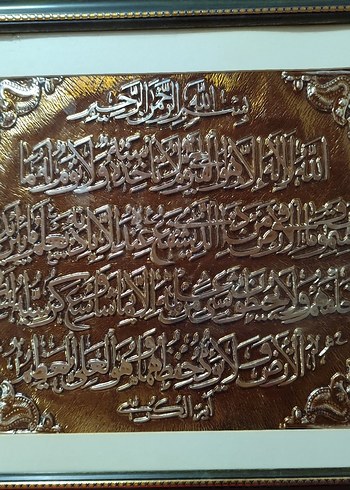 بسم الله الرحمن الرحيم
الله لا إله إلا هو الحي القيوم لا تأخذه سنة ولا نوم له ما
السموات وما في الأرض من ذا الذي يشفع عنده إلا بإذنه يعلم ما بين
خلفهم ولا يحيطون بشيء من علمه إلا بما شاء وسع كرسيه
الأرض ولا يؤده حفظهما وهو العلي العظيم
آية الكرسي